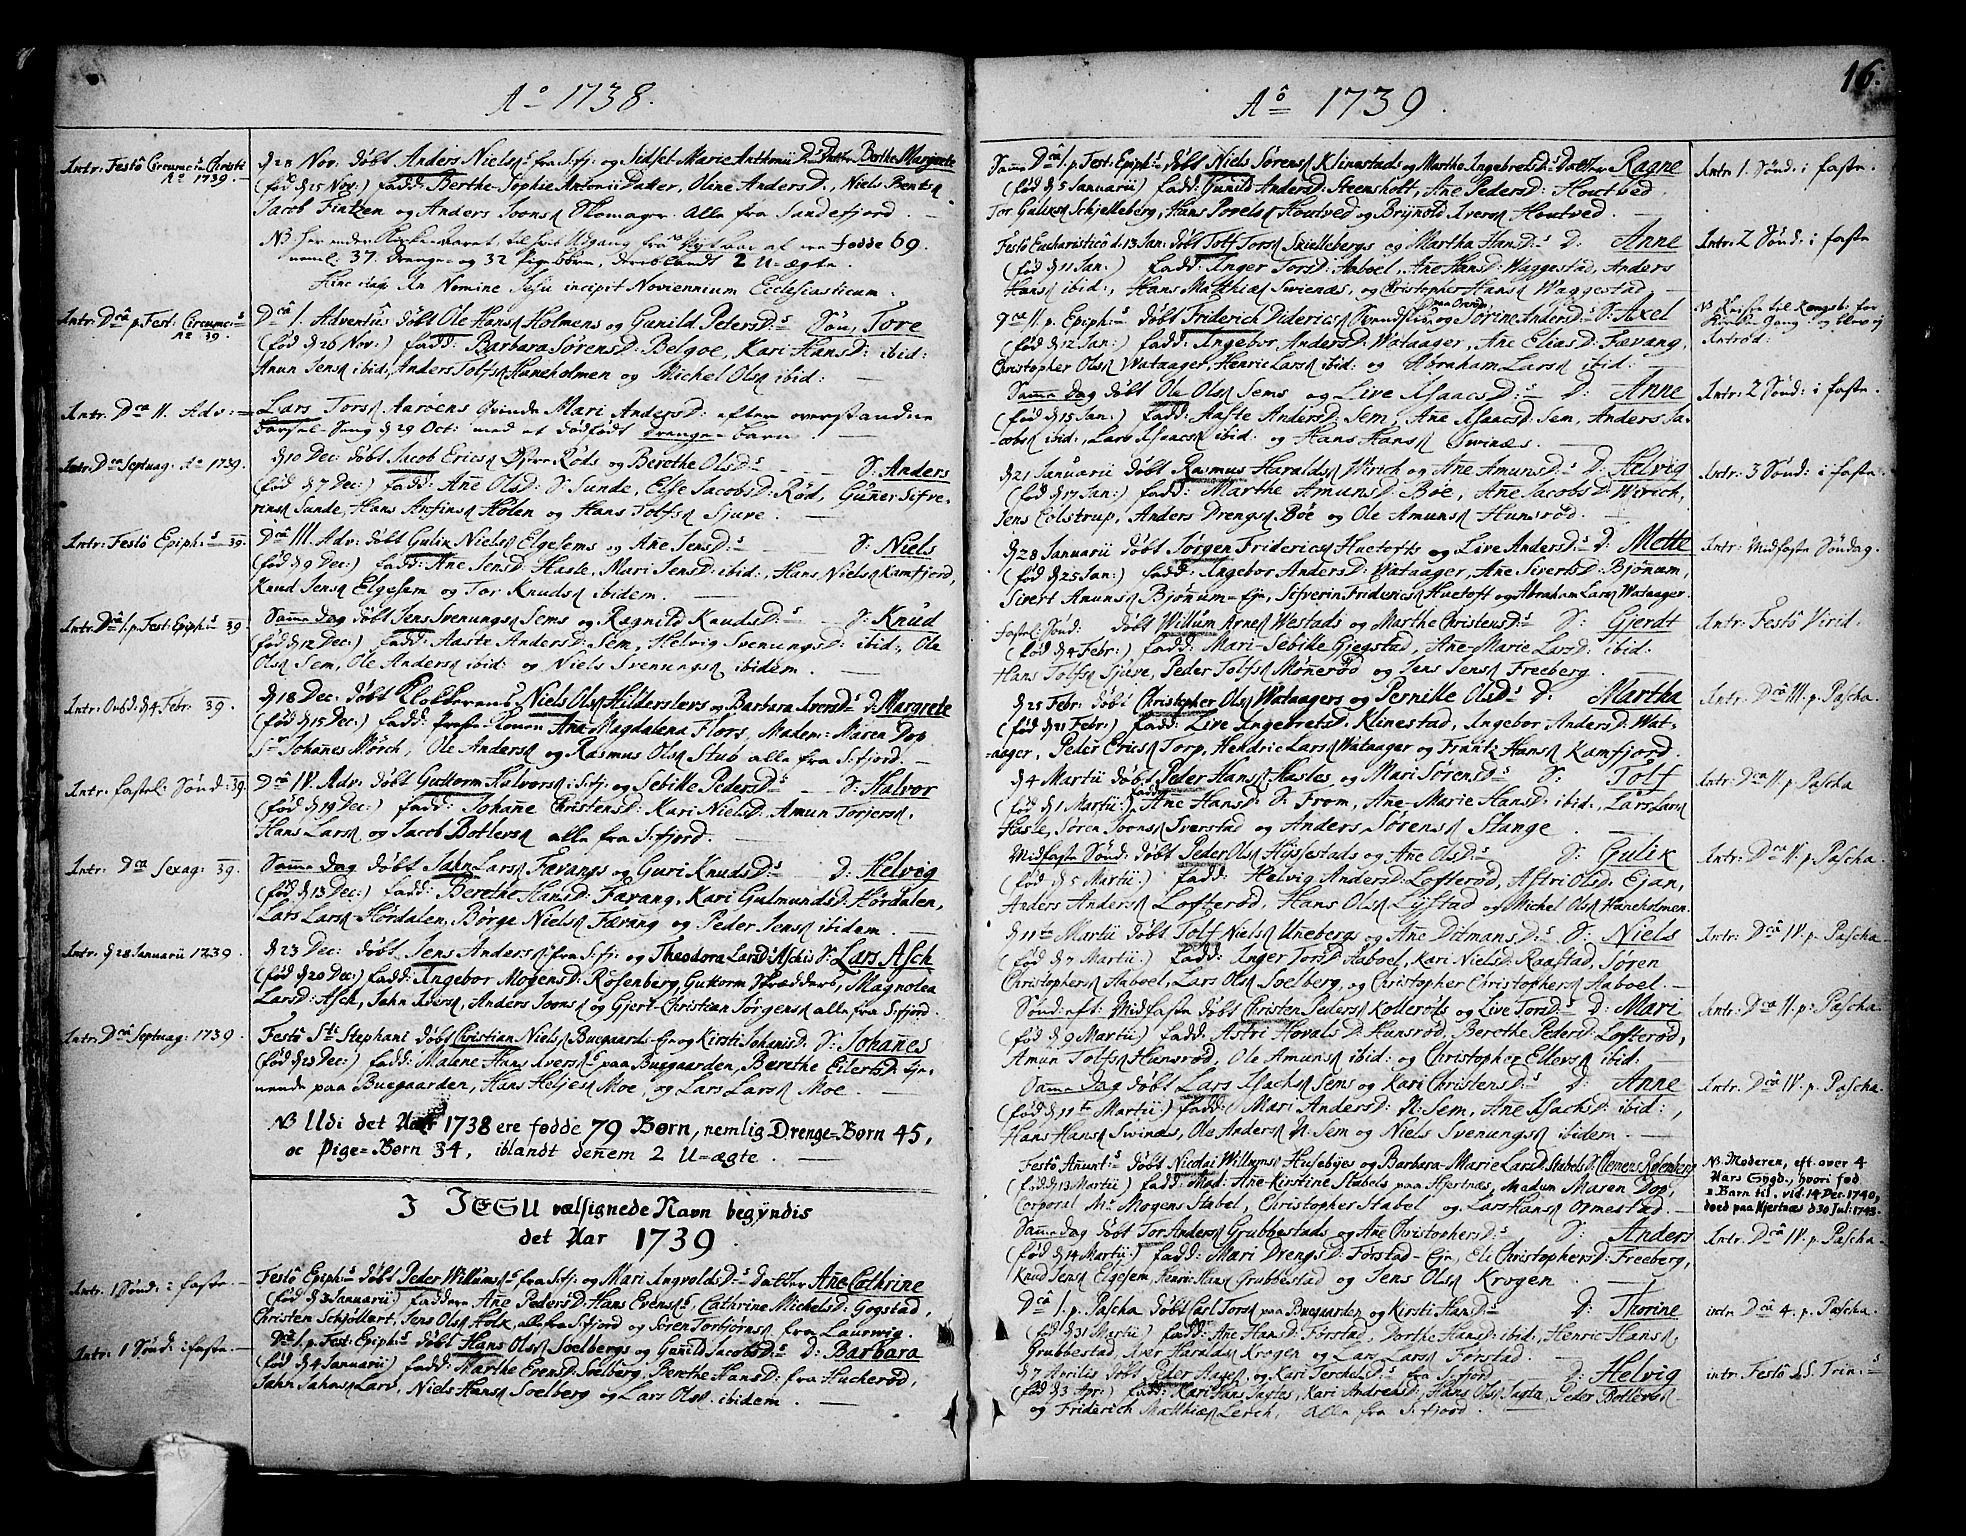 Aº 1738.
Intr: Festô Circumc:s Christi
Aº 1739.
d 28 Nov: døbt Anders Niels fra S:fj: og Sidset Marie Anthonii D:s Datter Berthe Margrete
(fød d 25 Nov:) fadd: Berthe-Sophie Antonii Datter, Oline Anders D:, Niels Bents
Jacob Fintzen og Anders Joens Skomager. Alle fra Sandefjord.
fødde 69.
neml: 37 Drenge- og 32 Pigebørn, deriblandt 2 U-ægte.
Nomine Jesu incipit Noviennium Ecclesiasticum.
Intr: Dcâ p. Fest: Circumc:s
Aº 39.
Dcâ 1. Adventûs døbt Ole Hans Holmens og Gunild Peters D:s Søn, Tore
(fød d 26 Nov:) fadd: Barbara Sørens D: Belgoe, Kari Hans D: ibid:
Anun Jens ibid:, Anders Tolfs Haneholmen og Michel Ols ibid:
Intr: Dca II. Adv:
Lars Tors Aarøens Qvinde Mari Anders D: efter overstanden
Barsel-Seng d 29 Oct: med et dødfødt Drenge-barn
Intr: Dca Septuag. Aº 1739.
d 10 Dec: døbt Jacob Erics Østre Røds og Berethe Ols D:s S: Anders
(fød d 7 Dec:) fadd: Ane Ols D: S: Sunde, Else Jacobs D: Rød, Guner Sifve-
rins Sunde, Hans Anfins Holen og Hans Tolfs Sjuve.
Intr: Festô Epiph:s 39.
Dcâ III. Adv: døbt Gulik Niels Elgesems og Ane Jens D:s S: Niels
(fød d 9 Dec:) fadd: Ane Jens D: Hasle, Mari Jens D: ibid:, Hans Niels Kamfjord,
Knud Jens Elgesem og Tor Knuds ibidem.
Intr: Dcâ 1. p. Fest: Epiph:s 39.
Samme dag døbt Jens Svenungs Sems og Ragnild Knuds D:s S: Knud
(fød d 12 Dec:) fadd: Aaste Anders D: Sem, Helvig Svenungs D: ibid:, Ole
Ols Sem, Ole Anders ibid: og Niels Svenungs ibidem.
Intr: Ons d. d 4 Febr: 39.
d 18 Dec: døbt Klokkerens Niels Ols Hilderslevs og Barbara Ivers D:s D: Margrete
(fød d 15 Dec:) fadd: Præste-Konen Ane Magdalena Flors, Madem: Maren Dop
Sr Johanes Mørch, Ole Anders og Rasmus Ols Stub alle fra S:fjord.
Intr: fastel: Sønd: 39.
Dcâ IV. Adv: døbt Guttorm Halvors: S:fj: og Sebille Peders D:s S: Halvor
(fød d 19 Dec:) fadd: Johane Christens D: Kari Niels D: Amun Torjers,
Hans Lars og Jacob Botlers alle fra S:fjord.
Intr: Dca Sexag: 39.
Samme dag døbt Jahn Lars Fævangs og Guri Knuds D:s D: Helvig
(fød d 13 Dec:) fadd: Berethe Hans D: Fævang, Kari Gulmunds D: Hørdalen,
Lars Lars Hørdalen, Børge Niels Fævang og Peder Jens ibidem.
Intr: d 28 Januarii 1739.
d 23 Dec: døbt Jens Anders fra S:fj: og Theodora Lars D: Aschis S: Lars Asch
(fød d 20 Dec:) fadd: Ingebor Mogens D: Rosenberg, Guttorm Skrædders, Magnolea
Lars D: Asch, Jahn Ivers, Anders Joons og Gjert-Christian Jørgens alle fra S:fjord.
Intr: Dcâ Septuag: 1739.
Festô Sti Stephani døbt Christian Niels Buegaards-Ej: og Kirsti Johanis D: S: Johañes
(fød d 23 Dec:) fadd: Malene Hans Ivers paa Buegaarden, Berethe Eilerts D: tje-
nende paa Buegaarden, Hans Heljes Moe, og Lars Lars Moe.
NB Udi det Aar 1738 ere fødde 79 Børn, nemlig Drenge-Børn 45,
oc Pige-Børn 34, iblandt deñem 2 U-ægte.
I JESU vælsignede Navn begyndis
det Aar 1739.
Intr: 1 Sønd: i faste.
Festô Epiph:s døbt Peder Willums fra S:fj: og Mari Ingvolds D:s datter Añe Cathrine
(fød d 3 Januarii) faddere Añe Peders D: Hans Evens, Cathrine Michels D: Gogstad,
Christen Schjøllert, Jens Ols Holk alle fra S:fjord og Søren Torbjørns fra Laurwig.
Intr: 1 Sønd: i faste.
Dca 1. p. Fest: Epiph:s døbt Hans Ols Soelbergs og Gunild Jacobs D:s D: Barbara
(fød d 4 Januarii) fadd: Marthe Evens D: Soelberg, Berethe Hans D: fra Huckerød,
Jahn Jahns Larv, Niels Hans Soelberg og Lars Ols ibidem.
Aô 1739.
16:
Samme Dca 1. p. Fest: Epiph:s døbt Niels Sørens Klinestad og Marthe Ingebrets D: Datter Ragne
(fød d 5 Januarii) fadd: Gunild Anders D: Steensholt, Ane Peders D: Houtved
Tor Guliks Schjelleberg, Hans Povels Houtved og Brynold Ivers Houtved.
Intr: 1. Sønd: i faste.
Festô Eucharisticô d. 13 Jan: døbt Tolf Tors Skiellebergs og Martha Hans D:s D: Anne
(fød d 11 Jan:) fadd: Inger Tors D: Aaboel, Ane Hans D: Waggestad, Anders
Hans ibid:, Hans Matthiæs Svienæs, og Christopher Hans Waggestad.
Intr: 2 Sønd: i faste
Dca II. p. Epiph:s døbt Friderich Diderics og Sørine Anders D: S: Axel
(fød d 12 Jan:) fadd: Ingebor Anders D: Wataager, Ane Elias D: Fævang,
Christopher Ols Wataager, Henric Lars ibid: og Abraham Lars ibid:
Samme dag døbt Ole Ols Sems og Live Isaacs D:s D: Anne
(fød d 15 Jan:) fadd: Aaste Anders D: Sem, Ane Isaacs D: Sem, Anders Ja-
cobs ibid:, Lars Isaacs ibid: og Hans Hans Svinæs.
Intr: 2 Sønd: i faste.
d 21 Januarii døbt Rasmus Haralds Wirich og Ane Amuns D:s D: Helvig
(fød d 17 Jan:) fadd: Marthe Amuns D: Bøe, Añe Jacobs D: Wirich,
Jens Colstrup, Anders Drengs Bøe og Ole Amuns Hunsrød.
Intr: 3 Sønd: i faste
d 28 Januarii døbt Jørgen Friderics Huetofts og Live Anders D:s D: Mette
(fød d 25 Jan:) fadd: Ingebor Anders D: Wataager, Añe Siverts D: Bjønum,
Sivert Anuns Bjønum-Ejn, Sifverin Friderics Huetoft og Abraham Lars Wataager.
Intr: Midfaste Søndag.
Fastel: Sønd: døbt Willum Arnes Westads og Marthe Christens D:s S: Gjerdt
(fød d 4 Febr:) fadd: Mari-Sebille Gjegstad, Ane-Marie Lars D: ibid:
Hans Tolfs Sjuve, Peder Tolfs Mønerød og Jens Jens Freeberg.
Intr: Festô Virid.
d 25 Febr: døbt Christopher Ols Wataagers og Pernille Ols D:s D: Martha
(fød d 21 Febr:) fadd: Live Ingebrets D: Klinestad, Ingebor Anders D: Wat-
aager, Peder Erics Torp, Hendric Lars Wataager og Frantz Hans Kamfjord.
Intr: Dcâ III. p. Pascha.
d 4 Martii døbt Peder Hans Hasles og Mari Sørens D:s S: Tolf
(fød d 1 Martii) fadd: Ane Hans D: S: From, Ane-Marie Hans D: ibid: Lars Lars
Hasle, Søren Joons Sverstad og Anders Sørens Stange.
Intr: Dca II. p. Pascha
Midfaste Sønd: døbt Peder Ols Hyssestads og Ane Ols D:s S: Gulik
(fød d 5 Martii) fadd: Helvig Anders D: Lofterød, Astri Ols D: Ejan,
Anders Anders Lofterød, Hans Ols Lystad og Michel Ols Haneholmen.
Intr: Dca II. p. Pascha
d 11te Martii døbt Tolf Niels Unebergs og Ane Ditmans D:s S: Niels
(fød d 7 Martii) fadd: Inger Tors D: Aaboel, Kari Niels D: Raastad, Søren
Christophers Haboel, Lars Ols Soelberg, og Christopher Christophers Haboel.
Intr: Dcâ IV. p. Pascha
Sønd: eft: Midfaste døbt Christen Peders Kollerøds og Live Tors D:s D: Mari
(fød d 9 Martii) fadd: Astri Hovals D: Hunsrød, Berethe Peders D: Lofterød,
Amun Tolfs Hunsrød, Ole Amuns ibid: og Christopher Ellevs ibid:
Intr: Dca II. p: Pascha.
Samme dag døbt Lars Isachs Sems og Kari Christens D:s D: Anne
(fød d 11te Martii) fadd: Mari Anders D: N: Sem, Ane Isachs D: ibid:,
Hans Hans Swinæs, Ole Anders N: Sem og Niels Svenungs ibidem.
Intr: Dcâ IV. p. Pascha.
Festô Anunt:s døbt Nicolai Willums Husebyes og Barbara-Marie Lars D: Stabels S: Clemens Rosenberg
(fød d 13 Martii) fadd: Mad: Ane-Kirstine Stabels paa Hjertnæs, Madum Maren Dop,
Corporal Mr Mogens Stabel, Christopher Stabel og Lars Hans Ormestad.
NB Moderen, eft. over 4
Aars Sygd., hvori fød
2 Børn til, vid. 14 Dec. 1740,
døed paa Hjertnæs d 30 Jul: 1743.
Samme dag døbt Tor Anders Grubbestads og Ane Christophers D:s S: Anders
(fød d 14 Martii) fadd: Mari Drengs D: Førstad-Ejn, Eli Christophers D: Freeberg,
Knud Jens Elgesem, Henric Hans Grubbestad og Jens Ols Krogen.
Intr: Dcâ IV. p. Pascha
Dcâ 1. p. Pascha døbt Carl Tors paa Buegaarden og Kirsti Hans D:s D: Thorine
(fød d 31 Martii) fadd: Ane Hans D: Førstad, Dorthe Hans D: ibid:, Henric Hans
Grubbestad, Iver Haralds Krogen og Lars Lars Førstad.
intr: Dcâ 4. p. Pascha.
d 7 Aprilis døbt Peder Aases og Kari Terchels D:s fra S:fjord D: Helvig
(fød d 3 Apr:) fadd: Kari Hans Sagtes, Kari Andreæ D: Hans Ols Sagta, Peder Bottlers
og Friderich Matthiæs Lerch, alle fra S:fjord.
intr: Festô SS. Trin:s